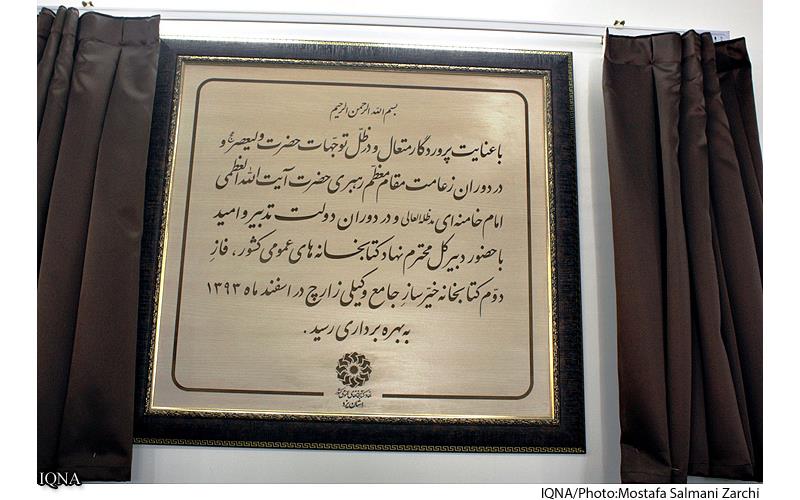 بسم الله الرحمن الرحیم
با عنایت پروردگار متعال و در ظلّ توجّهات حضرت ولیعصر(عج) و
در دوران زعامت مقام معظّم رهبری حضرت آیت الله العظمی
امام خامنه‌ای مدظله‌العالی و در دوران دولت تدبیر و امید
با حضور دبیرکل محترم نهاد کتابخانه‌های عمومی کشور، فاز
دوّم کتابخانه خیّرساز جامع وکیلی زارچ در اسفند ماه ۱۳۹۳
به بهره برداری رسید.
نهاد کتابخانه‌های عمومی کشور
استان یزد
IQNA
IQNA/Photo:Mostafa Salmani Zarchi